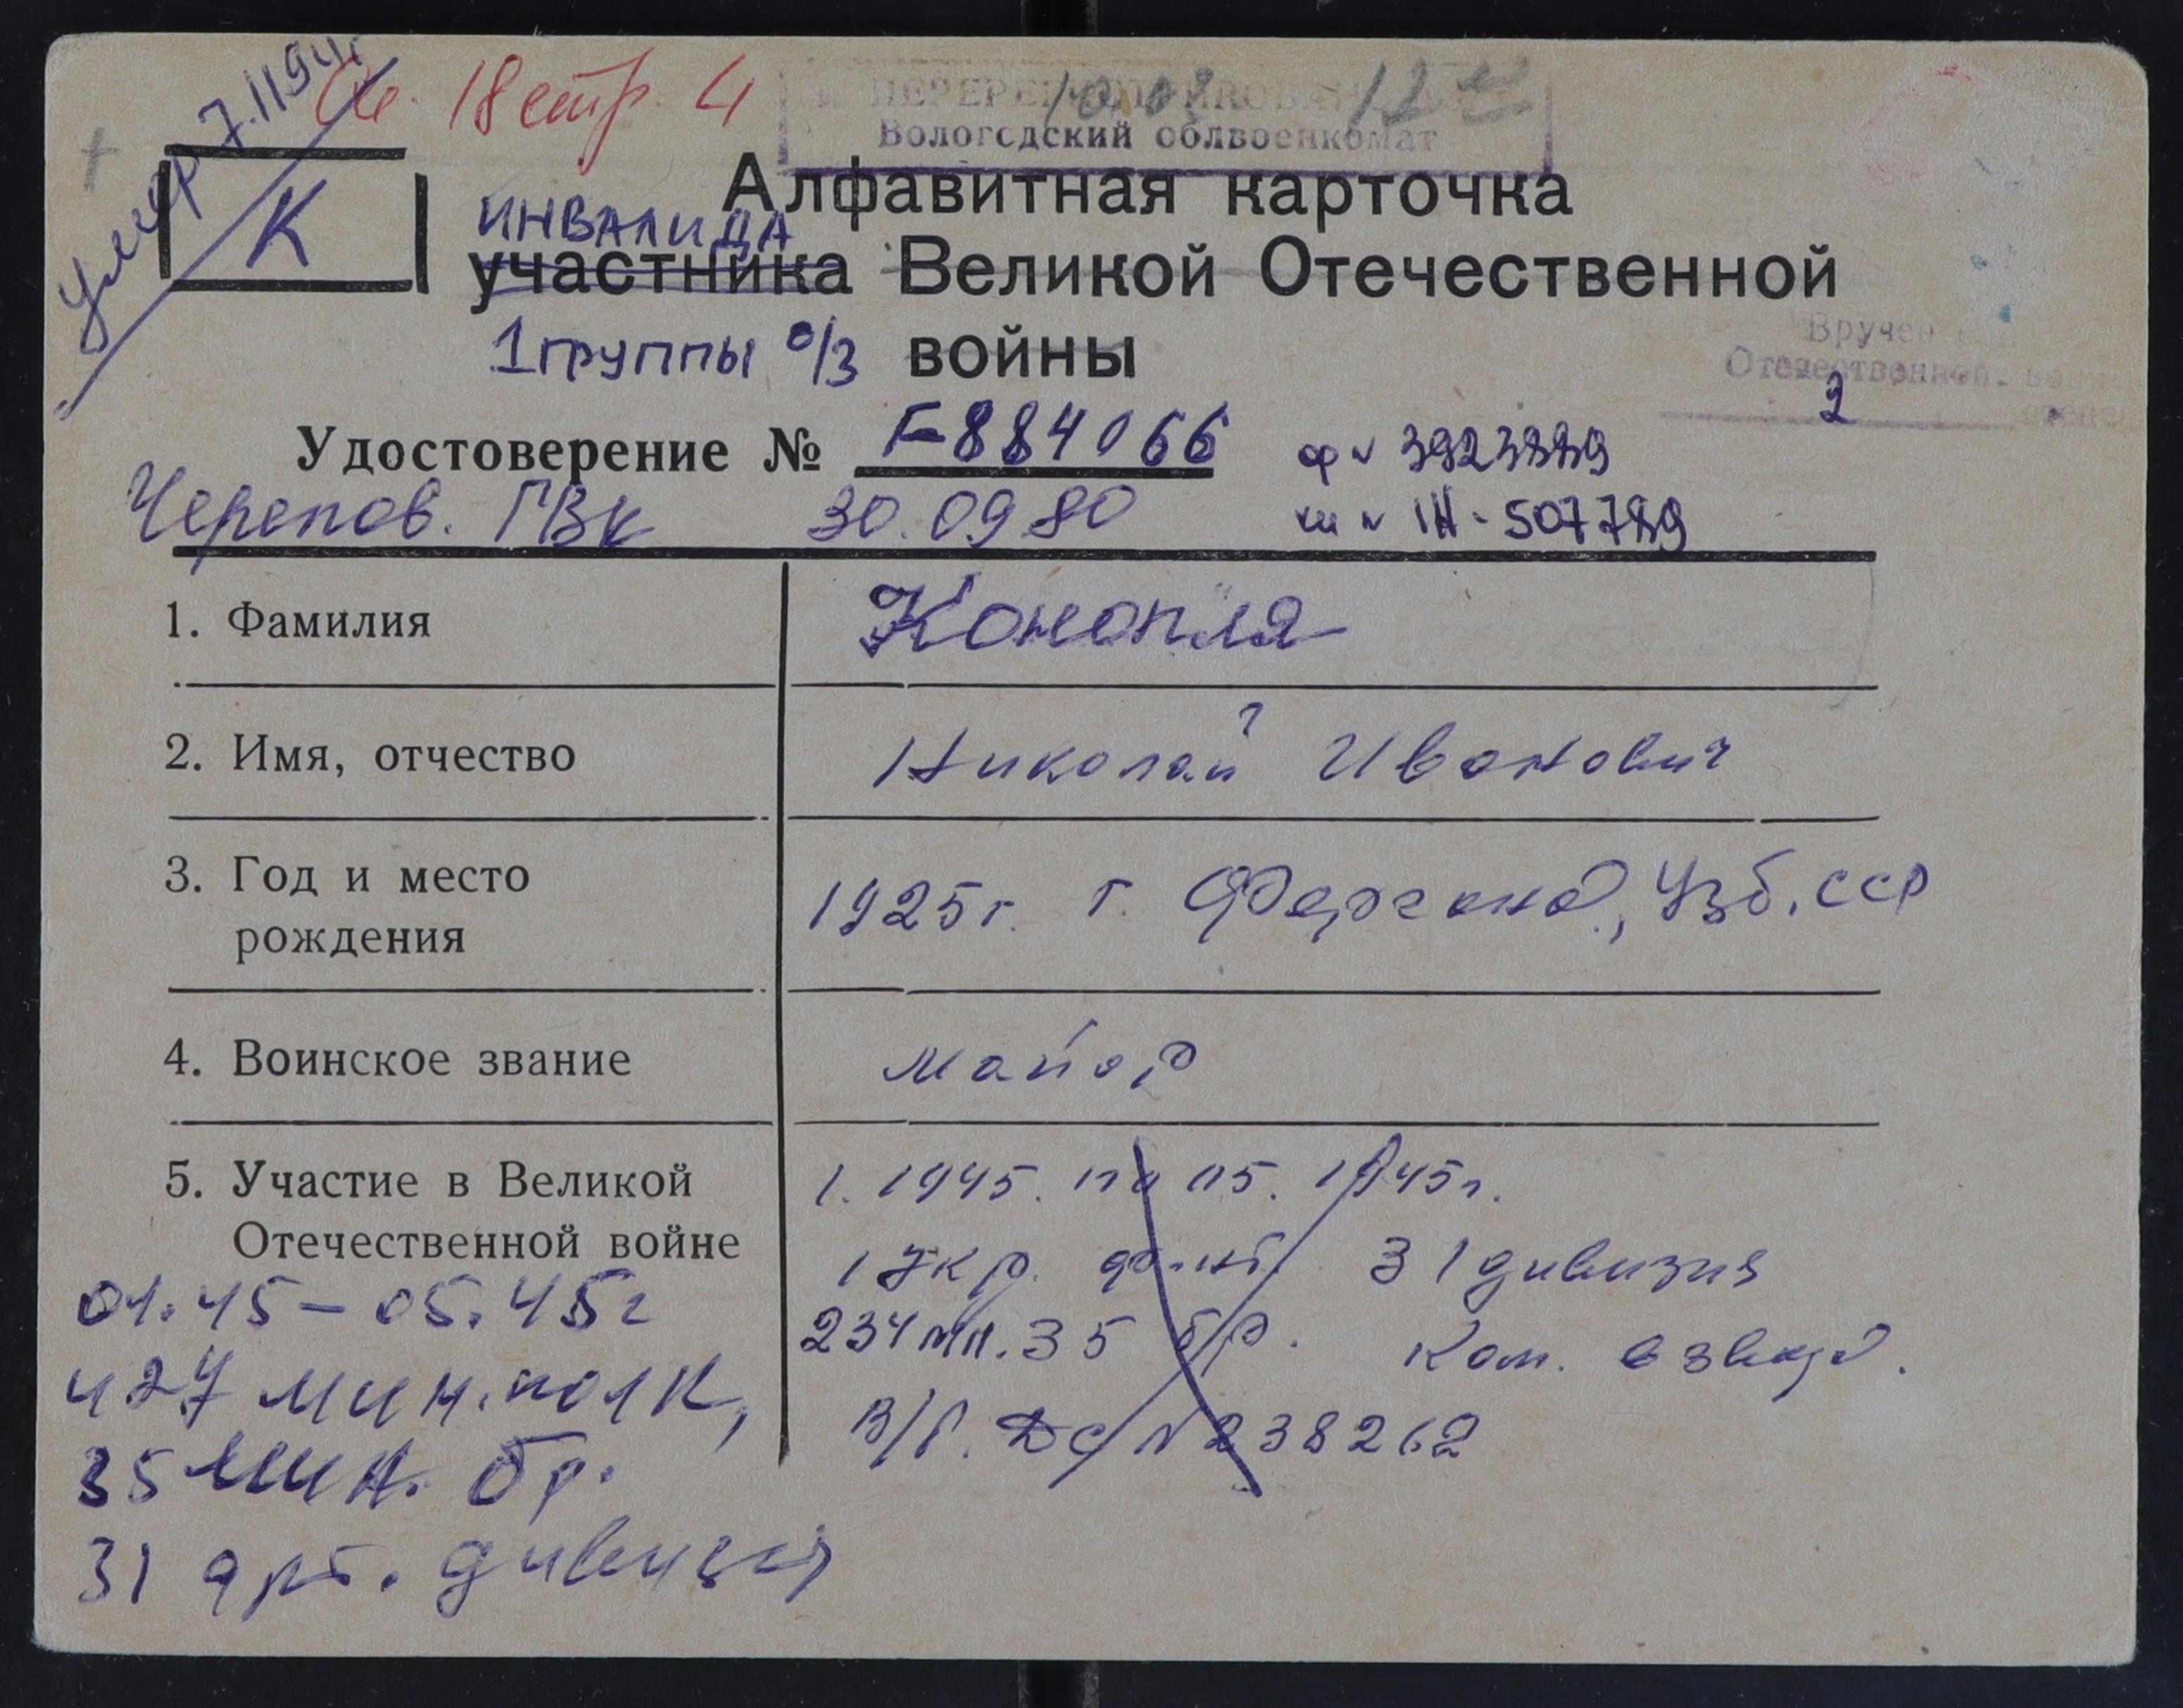 Умер 7.11.94г
18 стр. 4
10.02 12
Вологодский облвоенкомат
К
Алфавитная карточка
ИНВАЛИДА
участника Великой Отечественной
1 группы о/з войны
Вручен
Отечественной войны
2
Удостоверение № Г-884066 ор № 3923889
Черепов. ГВК 30.09.80
1. Фамилия Конопля
2. Имя, отчество Николай Иванович
3. Год и место рождения 1925г. г. Фергана, Узб. ССР
4. Воинское звание майор
5. Участие в Великой 1. 1945. по 05. 1945г.
Отечественной войне 1 Укр. фронт 31 дивизия
01.45 – 05.45г 234 мп. 35 бр. Ком. взвода.
427 мин. полк, В/б. ДС № 238262
35 мин. бр.
31 арт. дивизия